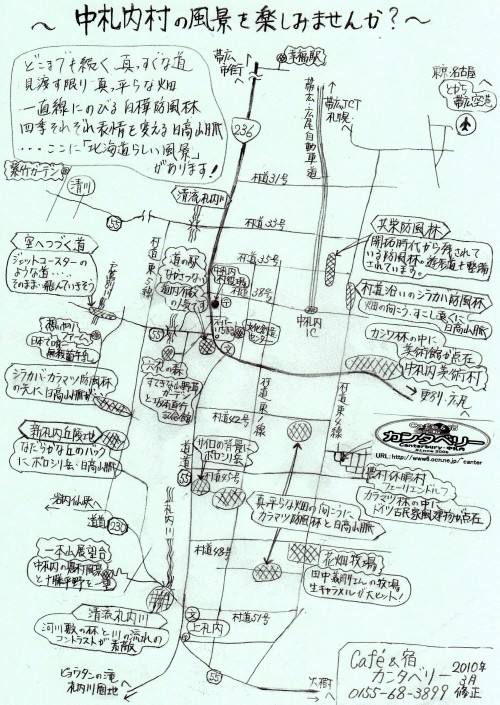 ～中札内村の風景を楽しみませんか？～
どこまでも続く真っすぐな道
見渡す限り真っ平らな畑
一直線にのびる白樺防風林
四季それぞれ表情を変える日高山脈
・・・ここに「北海道らしい風景」
があります!
帯広
市街へ
幸福駅
帯広・広尾自動車道
帯広JCT
札幌へ
東京・名古屋へ
とかち
帯広空港
236
紫竹ガーデン
清川
55
清流札内川
村道31号
村道33号
村道35号
村道38号
共栄防風林
開拓時代から残されて
いる防風林。遊歩道も整備
されています。
空へつづく道
ジェットコースター
のような道・・・・
そのまま飛んでいきそう
村道東5線
道の駅
なかさつない
中札内
村役場
文化創造
センター
中札内
IC
村道沿いのシラカバ防風林
畑の向こう、すこし遠くに
日高山脈
カシワ林の中に
美術館が点在
中札内美術村
更別・広尾へ
想いやりファーム
日本で唯一
無殺菌牛乳
55
六花の森
すてきな山野草
ガーデン
シラカバ・カラマツ防風林
の先に日高山脈が
村道東1線
村道東4線
村道42号
カンタベリー
Canterbury
URL:http://www6.ocn.ne.jp/~canter
新札内丘陵地
なだらかな丘のバック
にポロシリ岳・日高山脈
サイロの背景に
ポロシリ岳
村道45号
農村休暇村
フェーリエンドルフ
カラマツ林の中に
ドイツ古民家風建物が点在
道道
札内川
真っ平らな畑の向こうに
カラマツ防風林と日高山脈
道道
230
村道48号
一本山展望台
中札内の農村風景
と十勝平野を一望
花畑牧場
田中義剛さんの牧場
生キャラメルが大ヒット!
清流札内川
河川敷の林と川の流れの
コントラストが素敵
文
上札内
村道51号
ピョウタンの滝
札内川園地
55
大樹へ
Café&宿
カンタベリー
0155-68-3899
2010年
3月
修正